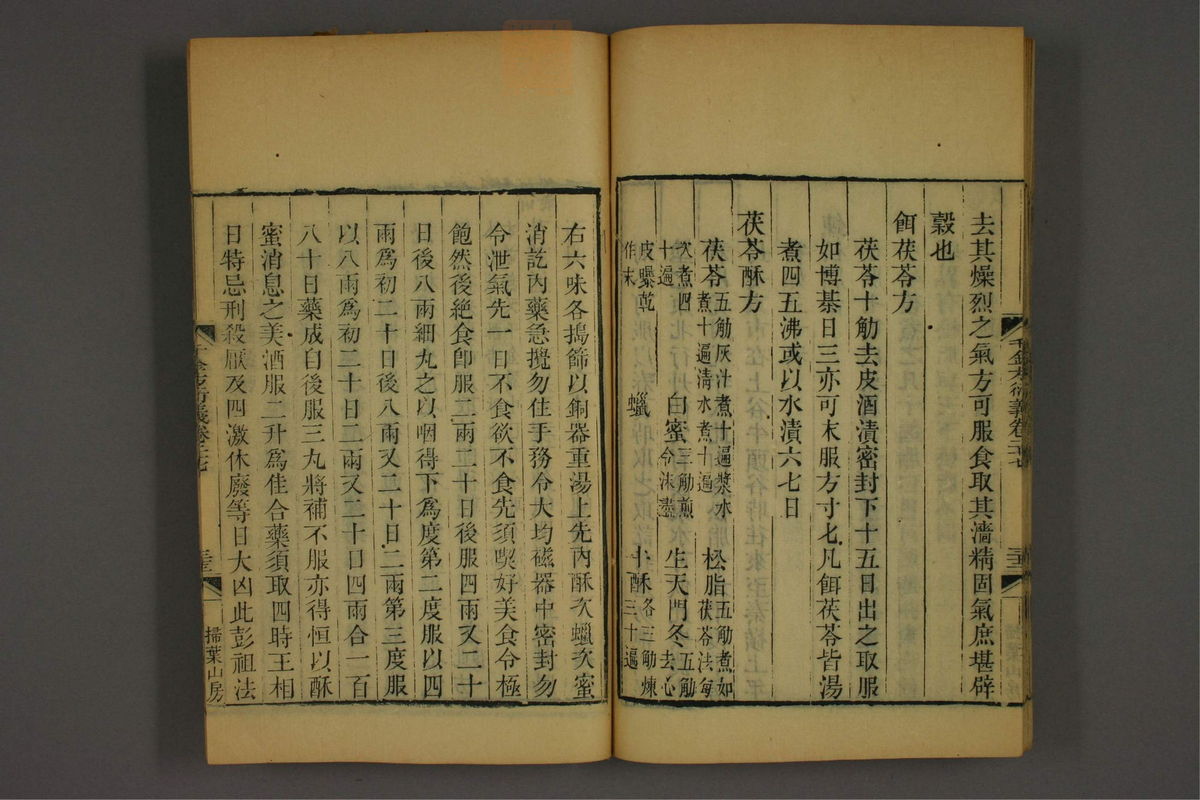 去其燥烈之氣方可服食取其濇精固氣庶堪辟
穀也
餌茯苓方
茯苓十觔去皮酒漬密封下十五日出之取服
如博棊日三亦可末服方寸匕凡餌茯苓皆湯
煮四五沸或以水漬六七日
茯苓酥方
茯苓五觔灰汁煮十遍漿水煮十遍清水煮十遍 松脂五觔煮如茯苓法每
次煮四十遍 白蜜三觔煎令沫盡 生天門冬五觔去心
皮曝乾作末 蠟 牛酥各三觔煉三十遍
千金方衍義卷二十七
右六味各搗篩以銅器重湯上先內酥次蠟次蜜
消訖內藥急攪勿住手務令大均磁器中密封勿
令泄氣先一日不食欲不食先須喫好美食令極
飽然後絕食卽服二兩二十日後服四兩又二十
日後八兩細丸之以咽得下爲度第二度服以四
兩爲初二十日後八兩又二十日二兩第三度服
以八兩爲初二十日二兩又二十日四兩合一百
八十日藥成自後服三丸將補不服亦得恒以酥
蜜消息之美酒服二升爲佳合藥須取四時王相
日特忌刑殺厭及四激休廢等日大凶此彭祖法
千金方衍義卷二十七
掃葉山房